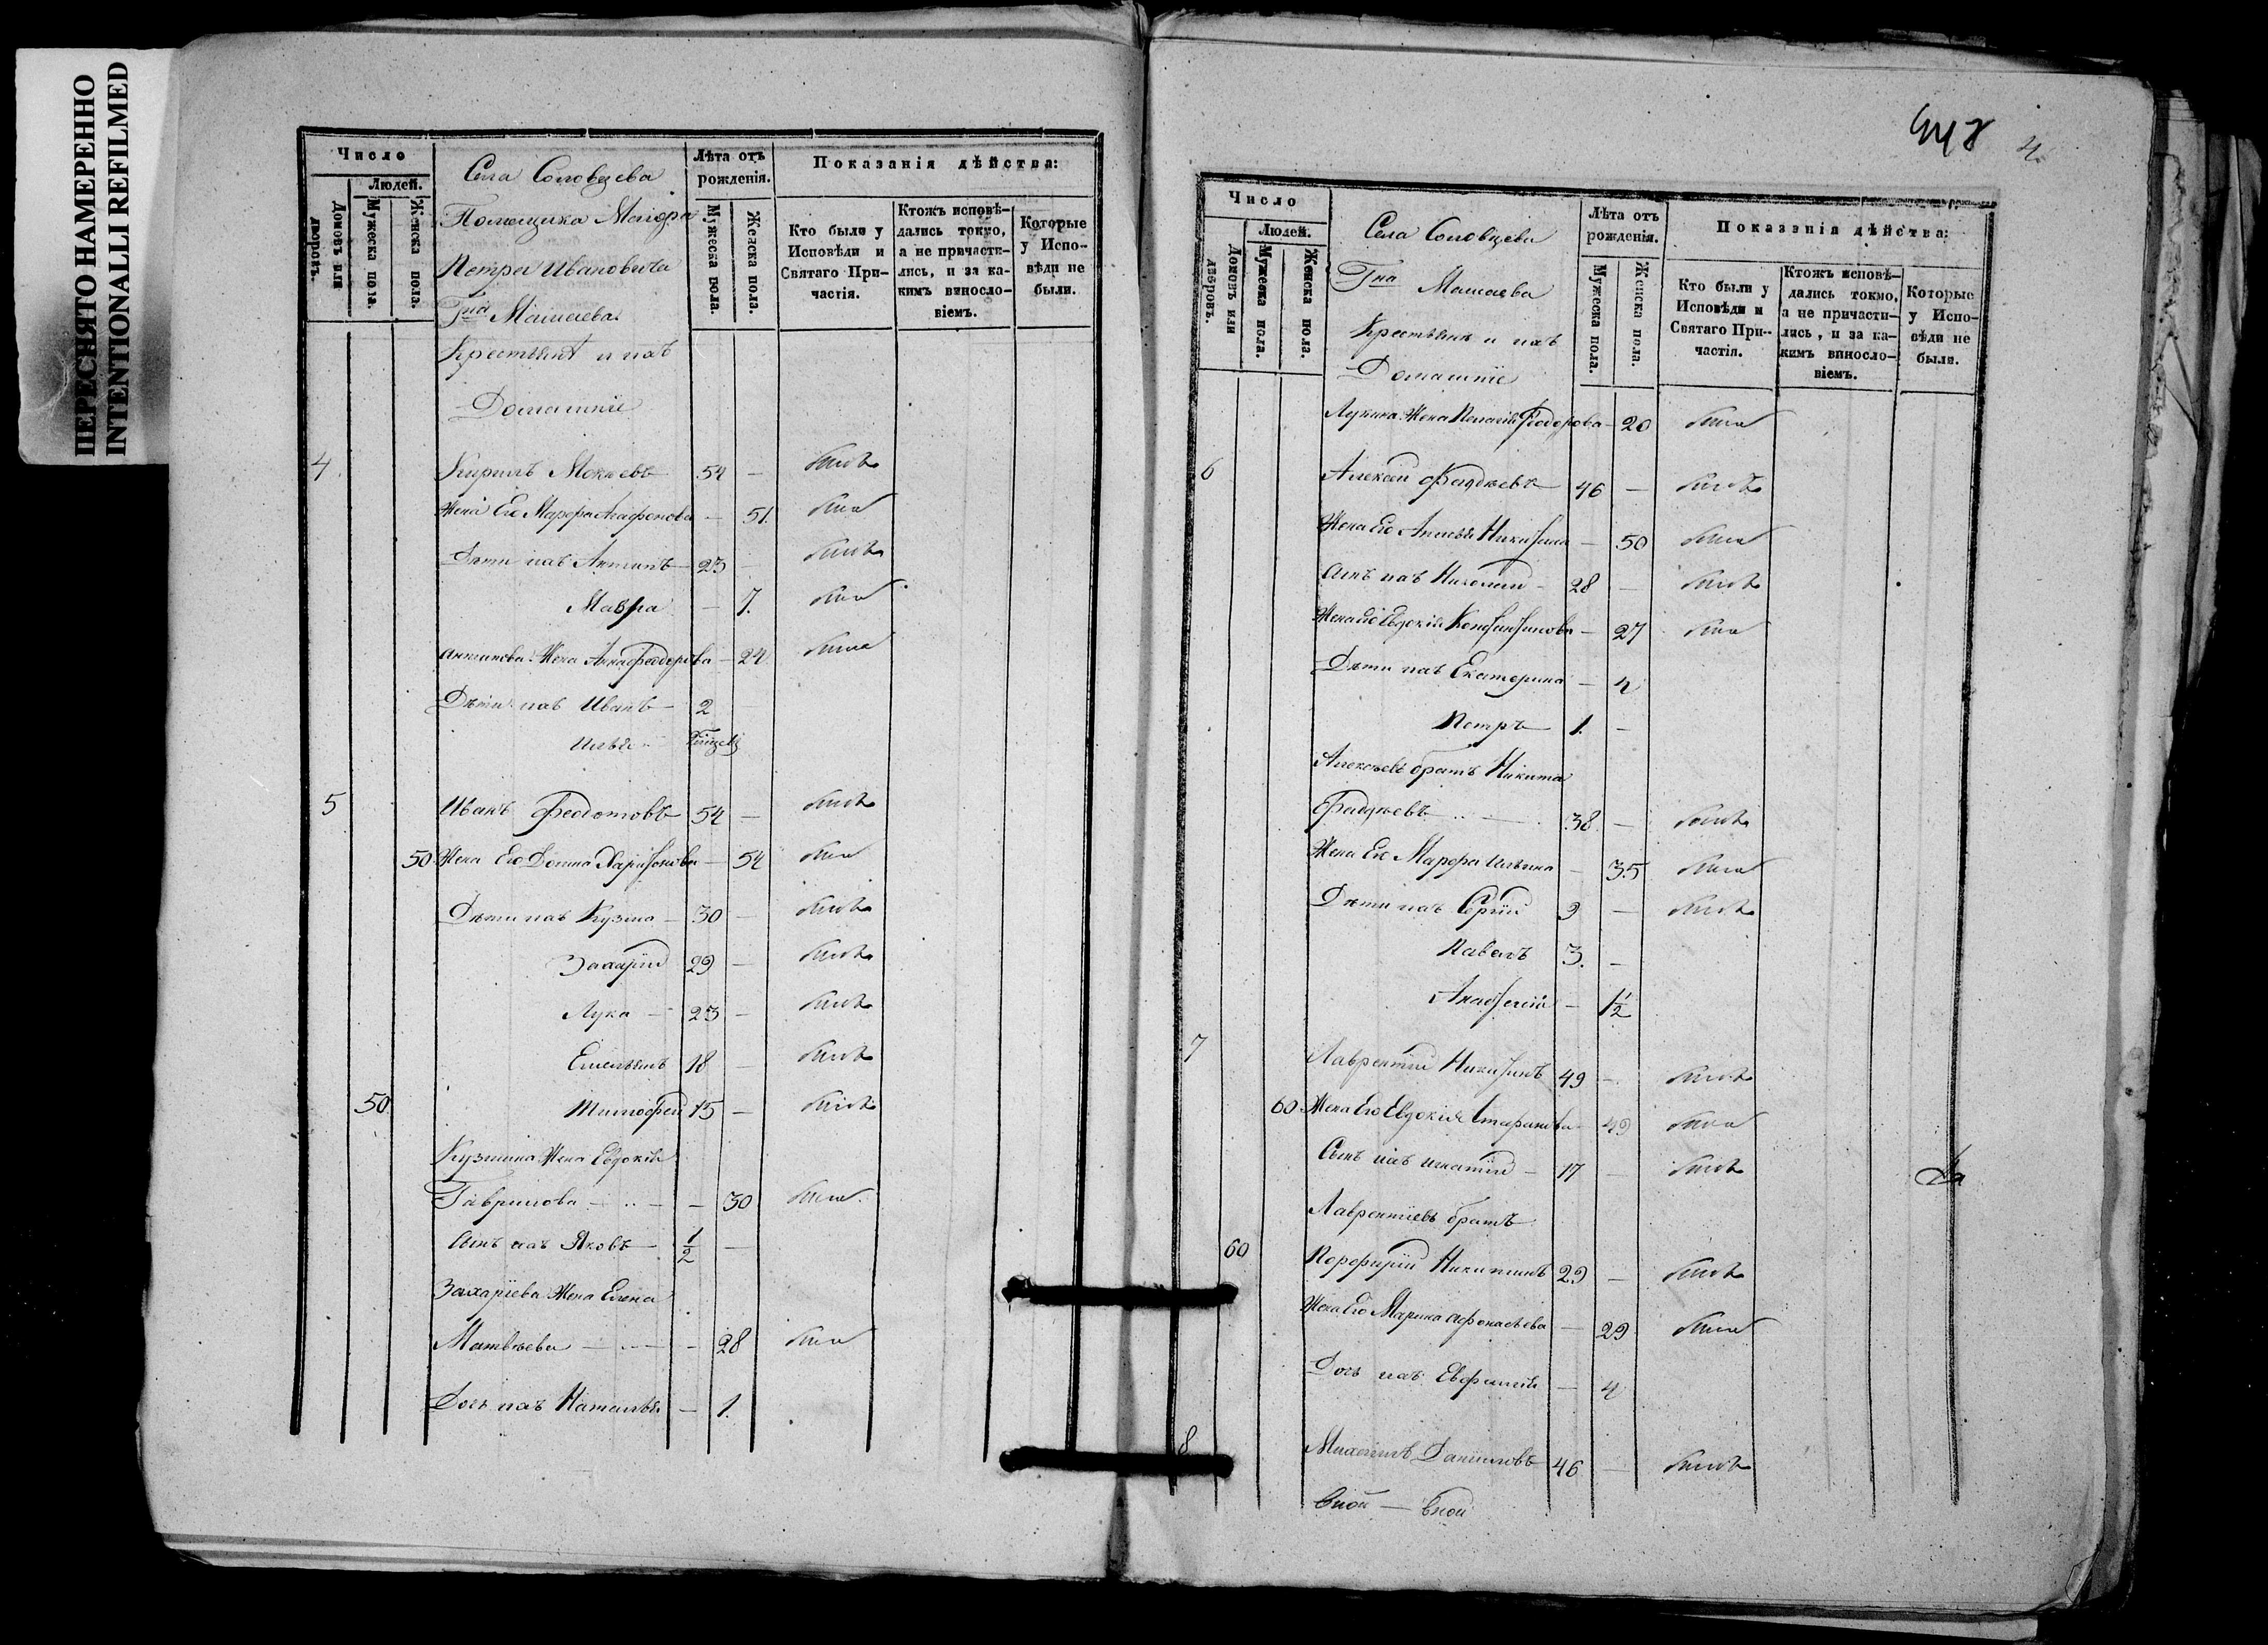 ПЕРЕСНЯТО НАМЕРЕННО
INTENTIONALLI REFILMED
Число
Людей.
Домовъ или дворовъ.
Мужеска пола.
Женска пола.
Села Соловцева
Помещика Маіора
Петра Ивановича
Гна Машаева
Крестьянѣ и ихъ
Домашніе
Лѣта отъ рожденія.
Мужеска пола.
Женска пола.
Показанія дѣйства:
Кто были у Исповѣди и Святаго Причастія.
Ктожъ исповѣдались токмо, а не причастились, и за какимъ винословіемъ.
Которые у Исповѣди не были.
4 Кирилъ Мокѣевъ 54 — былъ
Жена Его Марфа Агафонова — 51. была
Дѣти ихъ Антипъ 23 — былъ
Мавра — 7. была
Антипова Жена Анна Федорова — 24 была
Дѣти ихъ Иванъ — 2
Илья
5 Иванъ Федотовъ 54 — былъ
50 Жена Его Домна Харитонова — 54 была
Дѣти ихъ Кузма — 30 — былъ
Захарій 29 — былъ
Лука — 23 — былъ
Емельянъ 18 — былъ
50 Тимофей 15 — былъ
Кузмина Жена Евдокія
Гаврилова — 30 была
Сынъ ихъ Яковъ — 1/2 —
Захаріева Жена Елена
Матвѣева — 28 была
Дочь ихъ Наталья — 1.
4.
Число
Людей.
Домовъ или дворовъ.
Мужеска пола.
Женска пола.
Села Соловцева
Гна Машаева
Крестьянѣ и ихъ
Домашніе
Лѣта отъ рожденія.
Мужеска пола.
Женска пола.
Показанія дѣйства:
Кто были у Исповѣди и Святаго Причастія.
Ктожъ исповѣдались токмо, а не причастились, и за какимъ винословіемъ.
Которые у Исповѣди не были.
Лукина Жена Пелагія Федорова — 20 была
6 Алексѣй Фадѣевъ 46 — былъ
Жена Его Никитина — 50 была
Сынъ ихъ Николай — 28 — былъ
Жена его Евдокія Константинова — 27 была
Дѣти ихъ Екатерина — 4
Петръ 1. —
Алексѣевъ братъ Никита
Фадѣевъ 38 — былъ
Жена Его Марфа Ильина — 35 была
Дѣти ихъ Сергій 9 — былъ
Павелъ 3. —
Анастасія — 1 1/2
7 Лаврентій Никитинъ 49 — былъ
60 Жена Его Евдокія — 49 была
Сынъ ихъ Игнатій — 17 — былъ
Лаврентіевъ братъ
60 Порфирій Никитинъ 29 — былъ
Жена Его Марина Афонасьева — 29 была
Дочь ихъ Евфимія — 4
8 Михаилъ Даніиловъ 46 — былъ